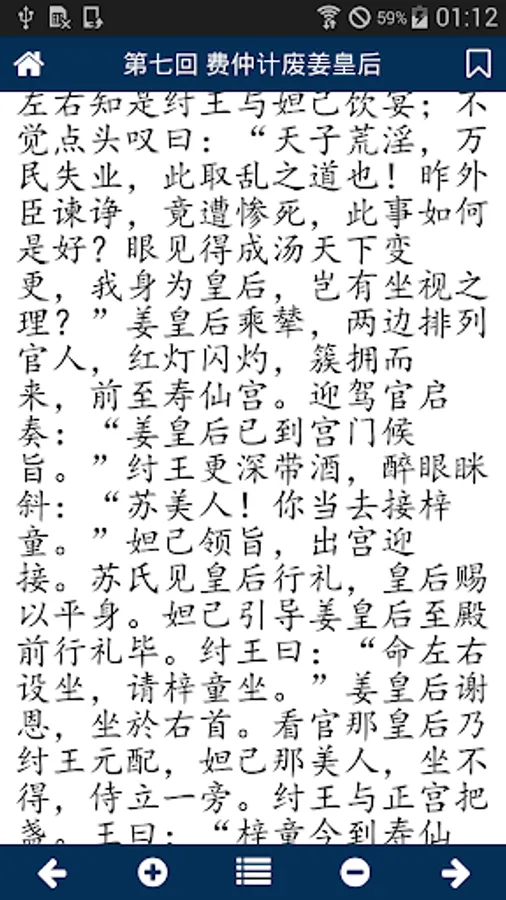 59% 01:12
第七回 费仲计废姜皇后
左右知是纣王与妲己饮宴；不
觉点头叹曰：“天子荒淫，万
民失业，此取乱之道也！昨外
臣谏诤，竟遭惨死，此事如何
是好？眼见得成汤天下变
更，我身为皇后，岂有坐视之
理？”姜皇后乘辇，两边排列
官人，红灯闪灼，簇拥而
来，前至寿仙宫。迎驾官启
奏：“姜皇后已到宫门候
旨。”纣王更深带酒，醉眼眯
斜：“苏美人！你当去接梓
童。”妲己领旨，出宫迎
接。苏氏见皇后行礼，皇后赐
以平身。妲己引导姜皇后至殿
前行礼毕。纣王曰：“命左右
设坐，请梓童坐。”姜皇后谢
恩，坐於右首。看官那皇后乃
纣王元配，妲己那美人，坐不
得，侍立一旁。纣王与正宫把
盏。王曰：“梓童今到寿仙